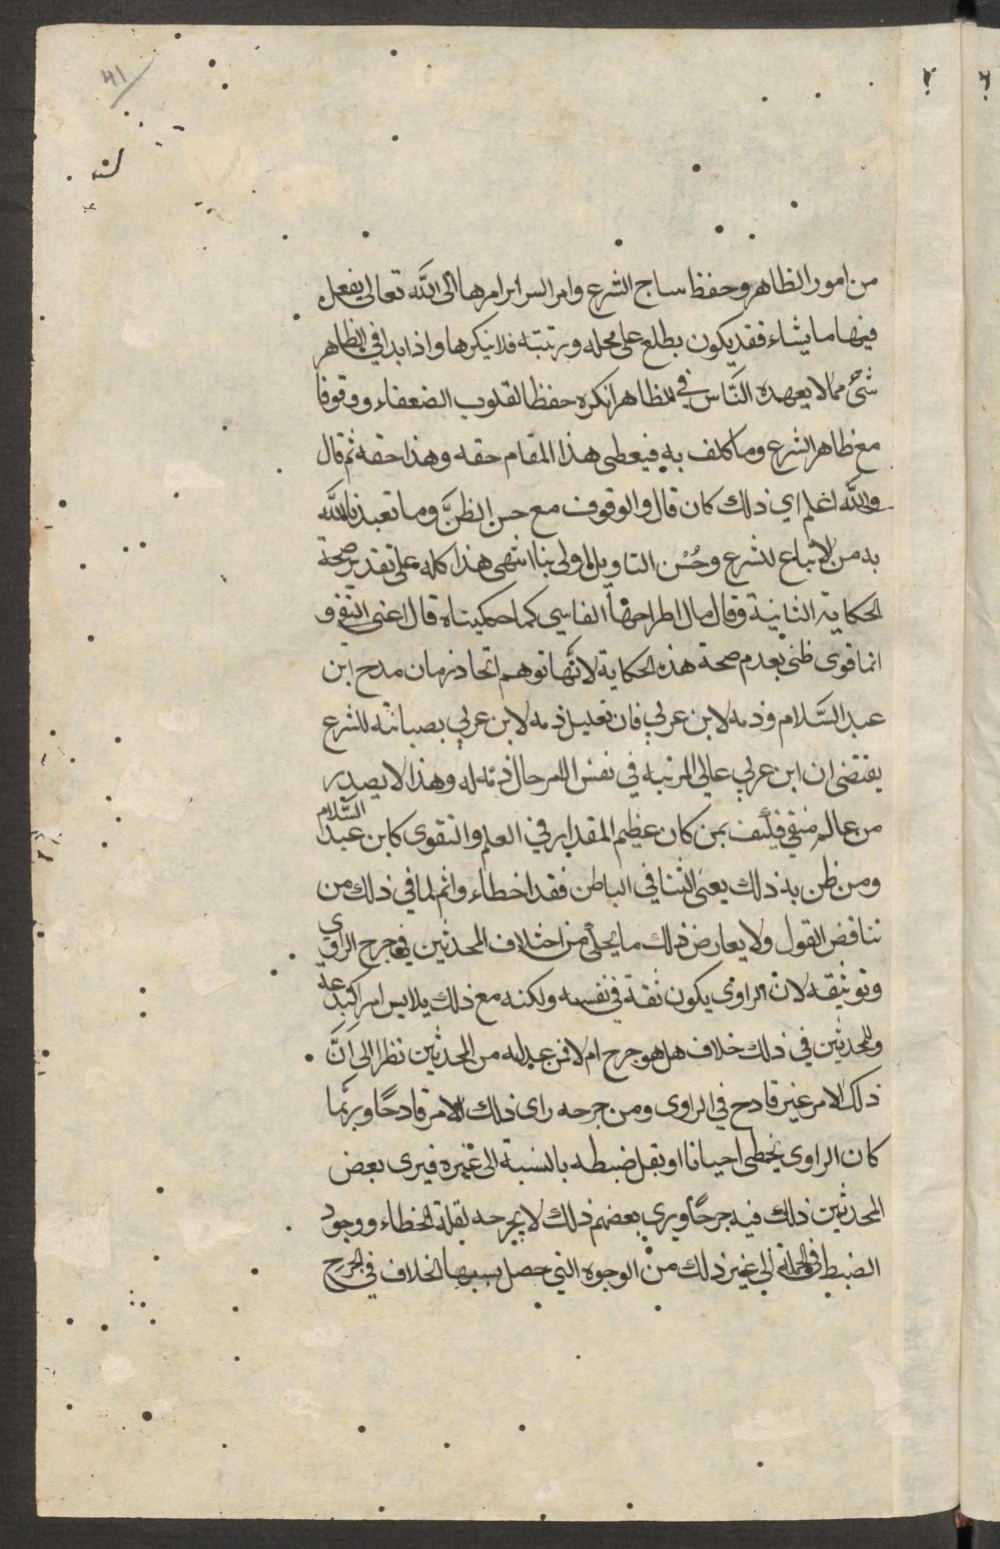 41
من امور الظاهر وحفظ ساج الشرع وامر السرائر امرها الى الله تعالى يفعل
فيها ما يشاء فقد يكون يطلع على محله ورتبته فلا ينكرها واذا بدا في الظاهر
شئ مما لا يعهده الناس في الظاهر انكره حفظا لقلوب الضعفاء ووقوفا
مع ظاهر الشرع وما كلف به فيعطى هذا المقام حقه وهذا حقه ثم قال
والله اعلم اي ذلك كان قال والوقوف مع حسن الظن وما تعبدنا الله
به من الاتباع للشرع وحسن التاويل اولى بنا انتهى هذا كله على تقدير صحة
الحكاية الثانية وقال الفاسي كما حكيناه قال اعنى
انما قوى ظنى بعدم صحة هذه الحكاية لانها توهم اتحاد زمان مدح ابن
عبد السلام وذمه لابن عربي فان تعليل ذمه لابن عربي بصيانته للشرع
يقتضى ان ابن عربي عالي المرتبة في نفس الامر حال ذمه له وهذا لا يصدر
من عالم متقي فكيف بمن كان عظيم المقدار في العلم والتقوى كابن عبد السلام
ومن ظن به ذلك يعنى الثنا في الباطن فقد اخطاء واثم لما في ذلك من
تناقض القول ولا يعارض ذلك ما يحكى من اختلاف المحدثين في جرح الراوي
وتوثيقه لان الراوى يكون ثقة في نفسه ولكنه مع ذلك يلابس امرا كبدعة
وللمحدثين في ذلك خلاف هل هو جرح ام لا فمن عدله من المحدثين نظر الى ان
ذلك الامر غير قادح في الراوى ومن جرحه راى ذلك الامر قادحا وربما
كان الراوى يخطى احيانا او يقل ضبطه بالنسبة الى غيره فيرى بعض
المحدثين ذلك فيه جرحا ويرى بعضهم ذلك لا يجرحه لقلة الخطاء ووجود
الضبط في الجملة الى غير ذلك من الوجوه التي حصل بسببها الخلاف في الجرح